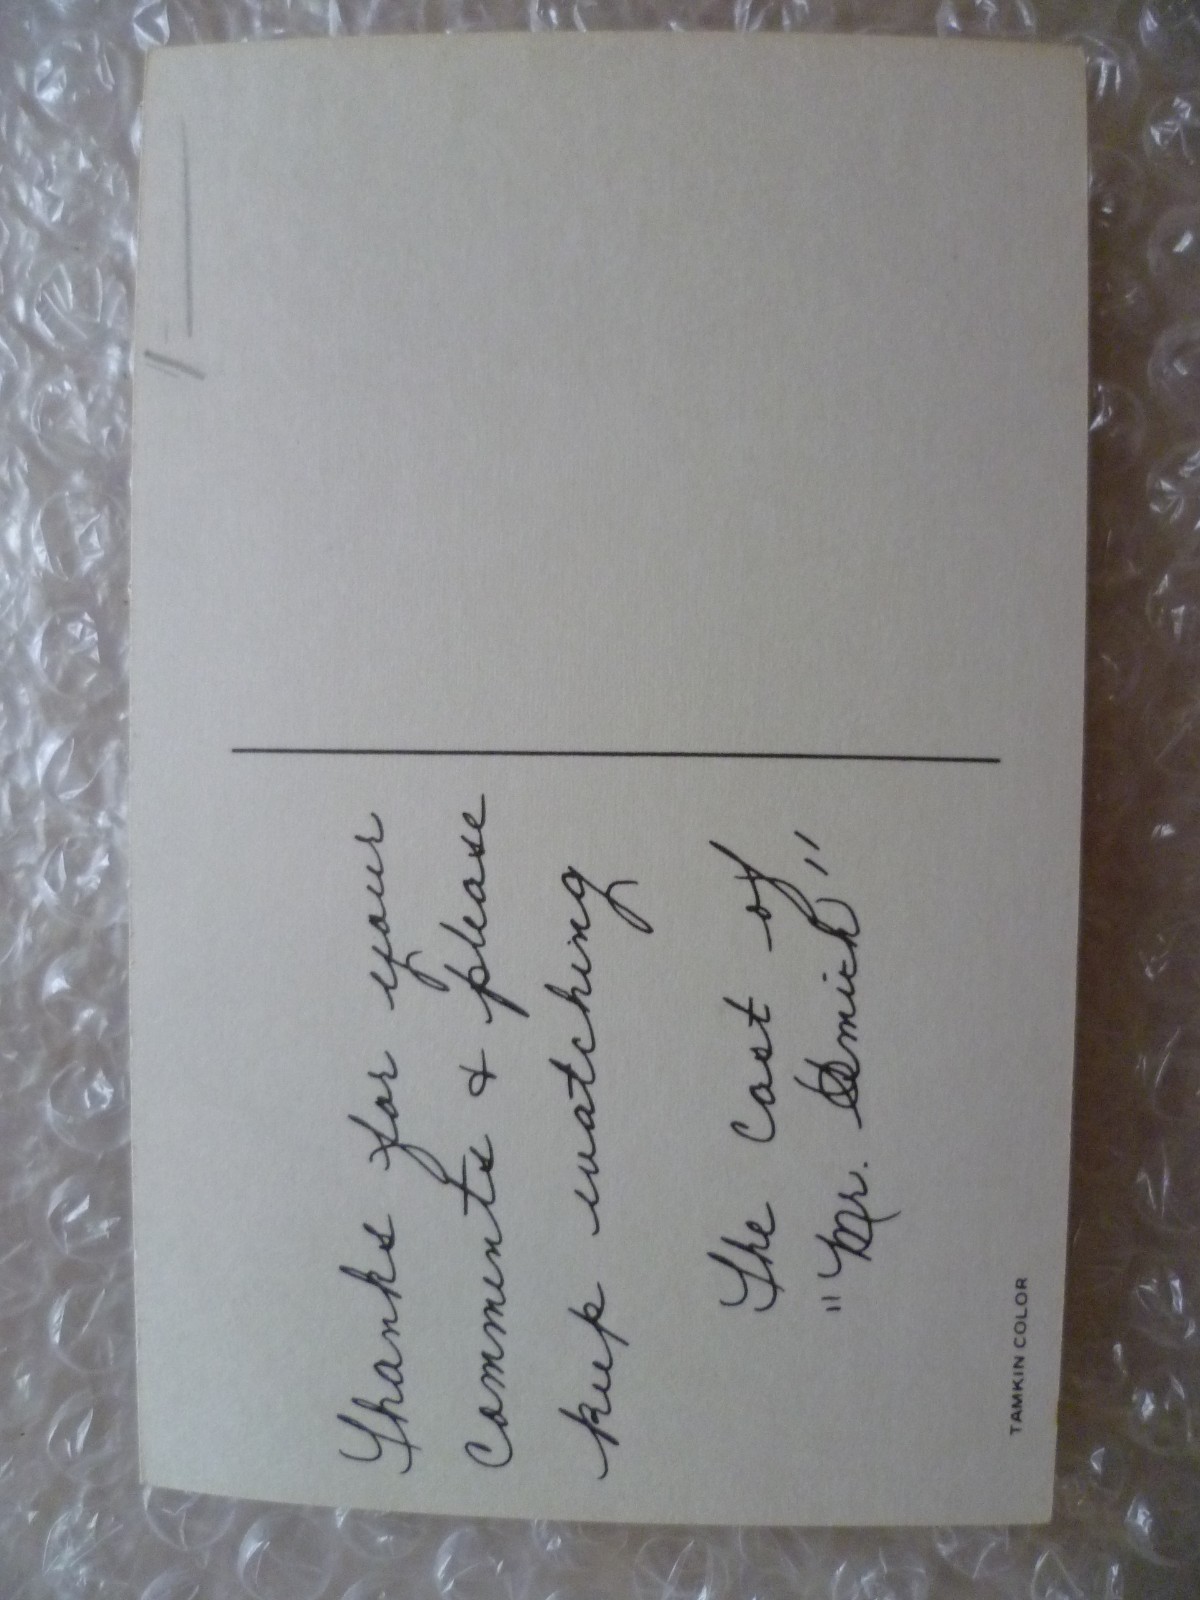 Thanks for your
Comments & please
keep watching
The Cast of
"Mr. Smith"
TAMKIN COLOR